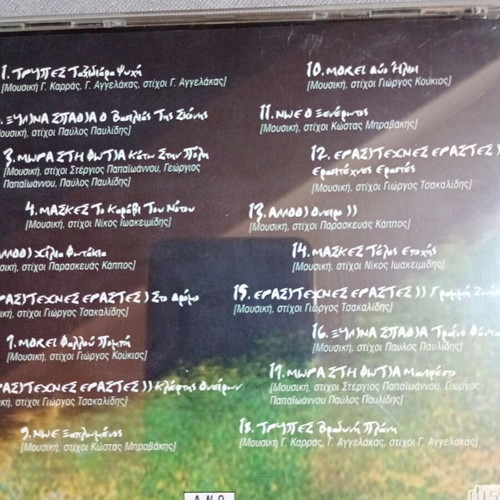 1. ΤΡΥΠΕΣ Ταξιδιάρα Ψυχή
[Μουσική Γ. Καρράς, Γ. Αγγελάκας, στίχοι Γ. Αγγελάκας]
ΞΥΛΙΝΑ ΣΠΑΘΙΑ Ο Βασιλιάς Της Σκόνης
Μουσική, στίχοι Παύλος Παυλίδης]
3. ΜΩΡΑ ΣΤΗ ΦΩΤΙΑ Κάτω Στην Πόλη
[Μουσική, στίχοι Στέργιος Παπαϊωάννου, Γεώργιος
Παπαϊωάννου, Παύλος Παυλίδης]
4. ΜΑΣΚΕΣ Το Καράβι Του Νότου
[Μουσική, στίχοι Νίκος Ιωακειμίδης]
Χίλια Φωτάκια
στίχοι Παρασκευάς Κάππος]
ΕΡΑΣΤΕΣ )) Στο Δρόμο
στίχοι Γιώργος Τσακαλίδης]
7. ΜΟΚΕΙ Φαλλού Πομπή
[Μουσική, στίχοι Γιώργος Κούκιος]
ΕΡΑΣΤΕΣ )) Κλέφτης Ονείρων
στίχοι Γιώργος Τσακαλίδης]
9. ΝΩΕ Ξαπλωμένος
[Μουσική, στίχοι Κώστας Μπραβάκης]
10. ΜΟΚΕΙ Δύο Ήλιοι
[Μουσική, στίχοι Γιώργος Κούκιος]
11. ΝΩΕ Ο Ξενέρωτος
[Μουσική, στίχοι Κώστας Μπραβάκης]
12. ΕΡΑΣΙΤΕΧΝΕΣ ΕΡΑΣΤΕΣ ))
Ερασιτέχνες Εραστές
[Μουσική, στίχοι Γιώργος Τσακαλίδης]
13. Όνειρο ))
[Μουσική, στίχοι Παρασκευάς Κάππος]
14. ΜΑΣΚΕΣ Τέλος Εποχής
[Μουσική, στίχοι Νίκος Ιωακειμίδης]
15. ΕΡΑΣΙΤΕΧΝΕΣ ΕΡΑΣΤΕΣ )) Γραμμή
[Μουσική, στίχοι Γιώργος Τσακαλίδης]
16. ΞΥΛΙΝΑ ΣΠΑΘΙΑ Τρένο
[Μουσική, στίχοι Παύλος Παυλίδης]
17. ΜΩΡΑ ΣΤΗ ΦΩΤΙΑ
[Μουσική, στίχοι Στέργιος Παπαϊωάννου, Γιώργος
Παπαϊωάννου Παύλος Παυλίδης]
18. ΤΡΥΠΕΣ Βραδινή Πλάνη
[Μουσική Γ. Καρράς, Γ. Αγγελάκας, στίχοι Γ. Αγγελάκας]